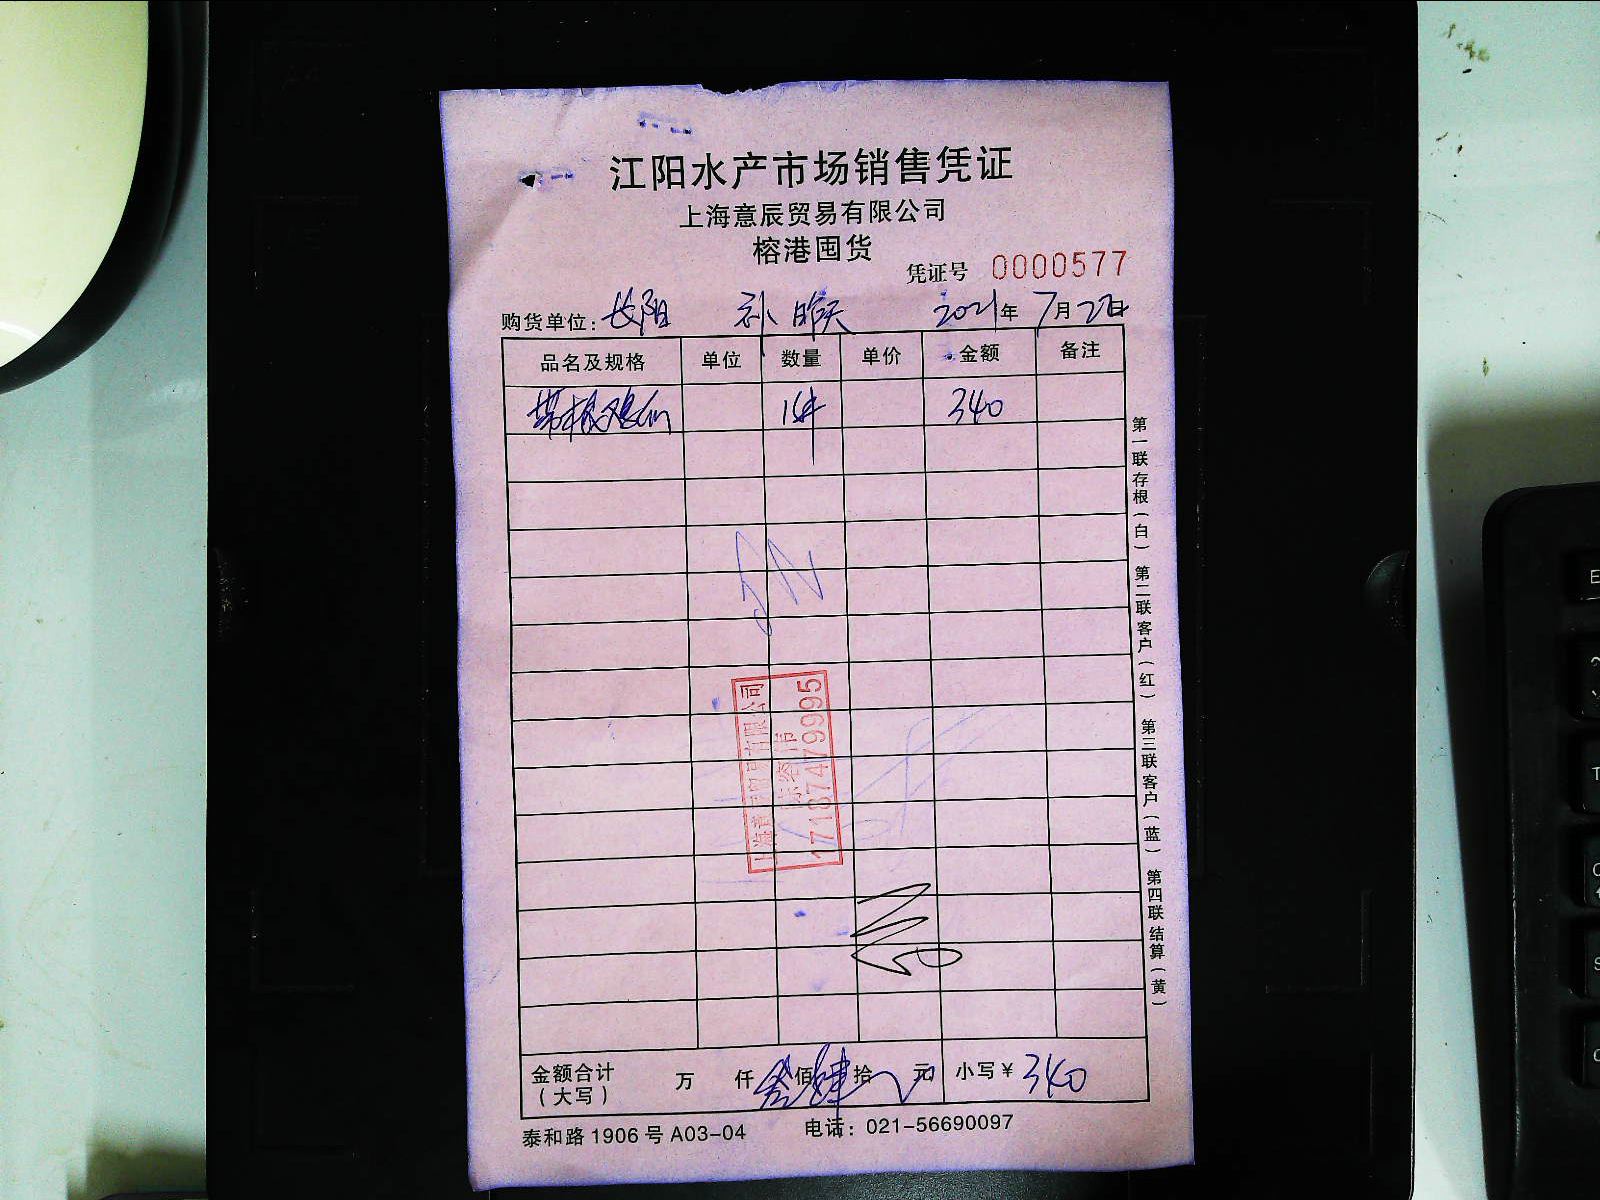 江阳水产市场销售凭证
上海意辰贸易有限公司
榕港囤货
凭证号 0000577
购货单位: 长阳 补 昨天 2021年 7月 22日
品名及规格 单位 数量 单价 金额 备注
带根 1件 340
第一联存根(白) 第二联客户(红) 第三联客户(蓝) 第四联结算(黄)
上海意辰贸易有限公司
17187479995
金额合计 万 仟 叁佰 肆拾 元 小写¥ 340
(大写)
泰和路1906号A03-04 电话: 021-56690097